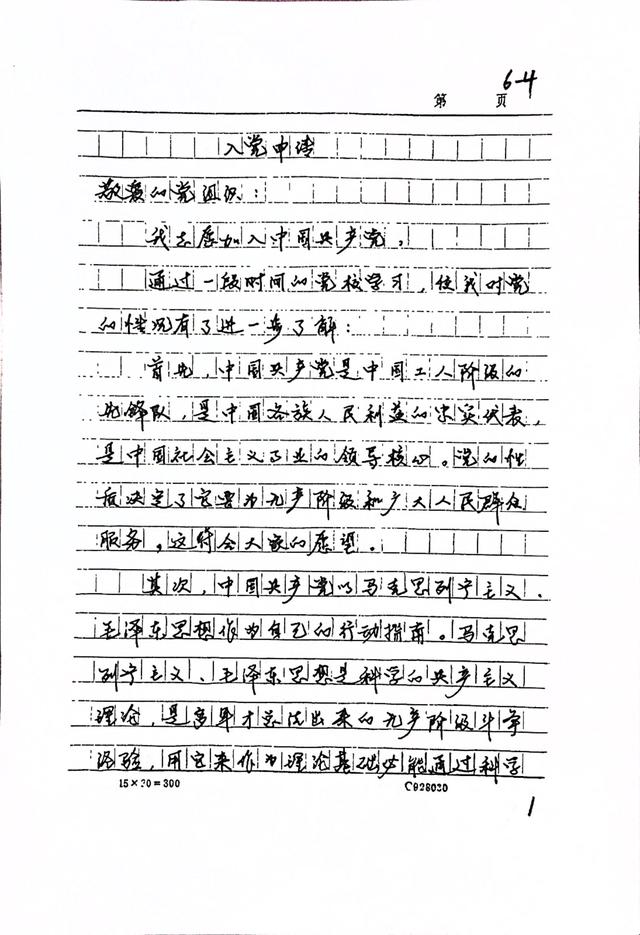 6-4
第 页
入党申请
敬爱的党组织：
我志愿加入中国共产党，
通过一段时间的党校学习，使我对党
的情况有了进一步了解：
首先，中国共产党是中国工人阶级的
先锋队，是中国各族人民利益的忠实代表，
是中国社会主义事业的领导核心。党的性
质决定了它要为无产阶级和广大人民群众
服务，这符合大家的愿望。
其次，中国共产党以马克思列宁主义、
毛泽东思想作为自己的行动指南。马克思
列宁主义、毛泽东思想是科学的共产主义
理论，是多年才总结出来的无产阶级斗争
经验，用它来作为理论基础必能通过科学
15×20=300 C928030
1